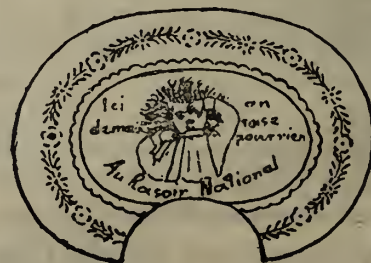 Ici on
demain rase
pourrien
Au Rasoir National